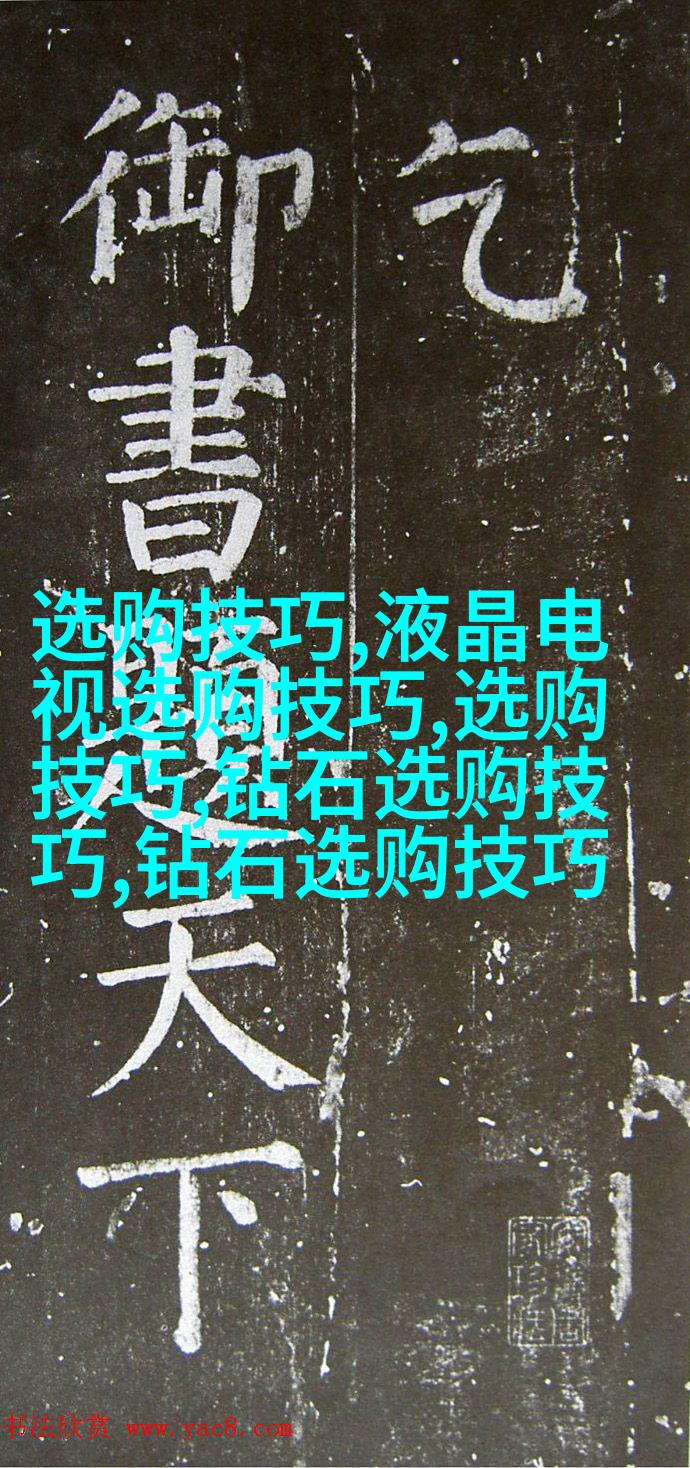 乞
御書題天下
选购技巧,液晶电
视选购技巧,选购
技巧,钻石选购技
巧,钻石选购技巧
书法欣赏 www.yac8.com